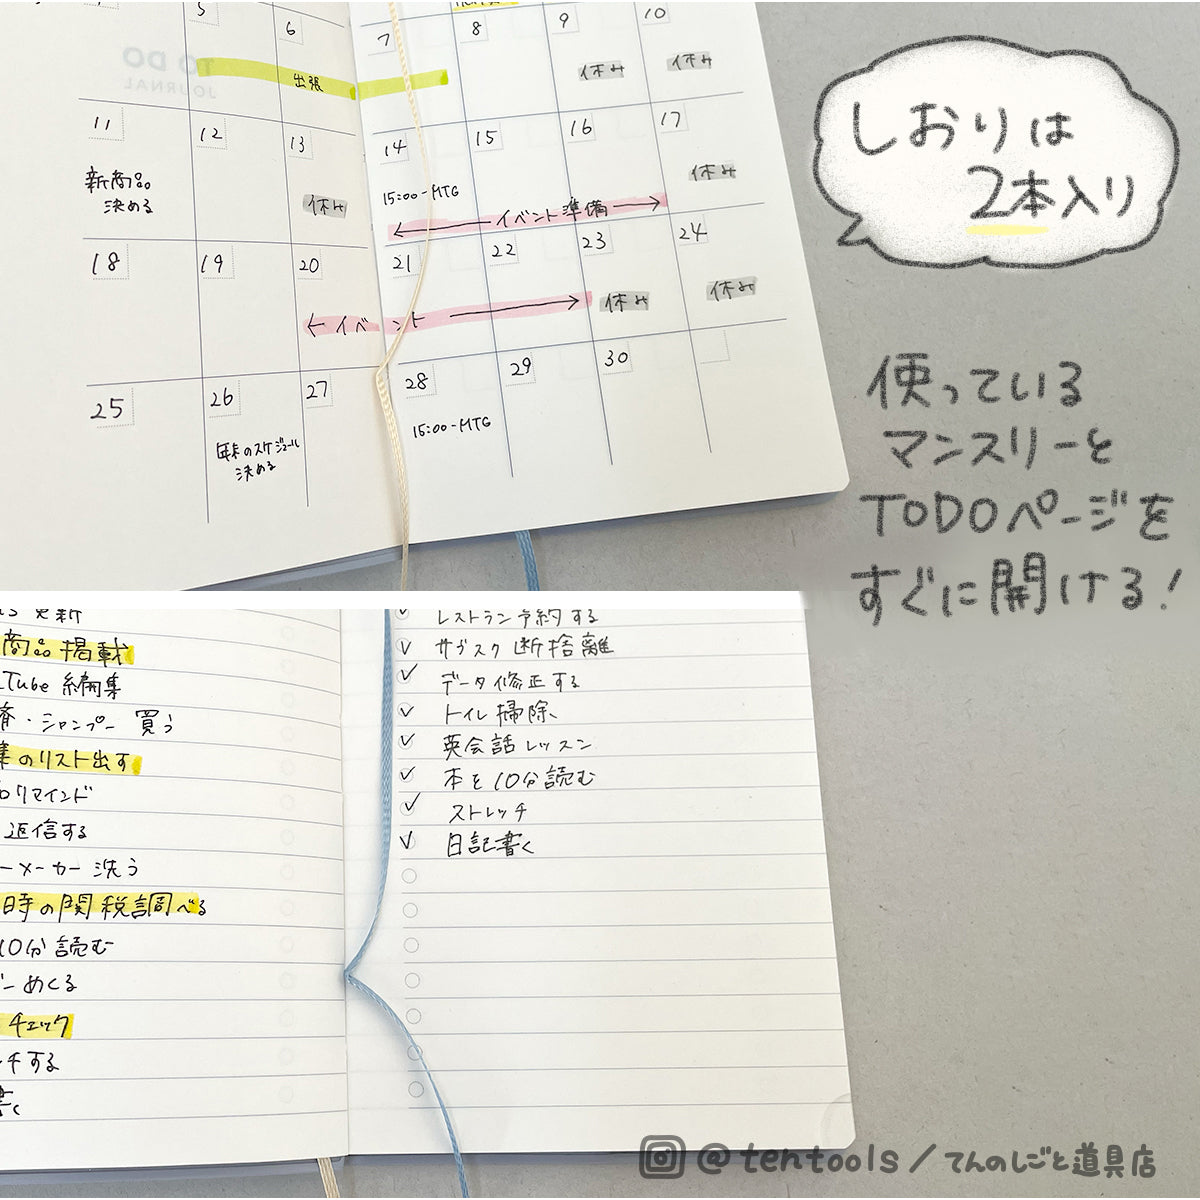 5
6
7
8
9
10
TO DO
JOURNAL
出張
休み
休み
11
12
13
14
15
16
17
新商品
決める
休み
15:00-MTG
イベント準備
休み
18
19
20
21
22
23
24
イベント
休み
休み
25
26
27
28
29
30
年末のスケジュール
決める
15:00-MTG
しおりは
2本入り
使っている
マンスリーと
TODOページを
すぐに開ける!
更新
商品掲載
Tube 編集
・シャンプー 買う
のリスト出す
リマインド
返信する
ーメーカー 洗う
時の関税調べる
10分読む
めくる
チェック
チする
書く
レストラン予約する
サブスク断捨離
データ修正する
トイレ掃除
英会話レッスン
本を10分読む
ストレッチ
日記書く
@tentools/てんのしごと道具店